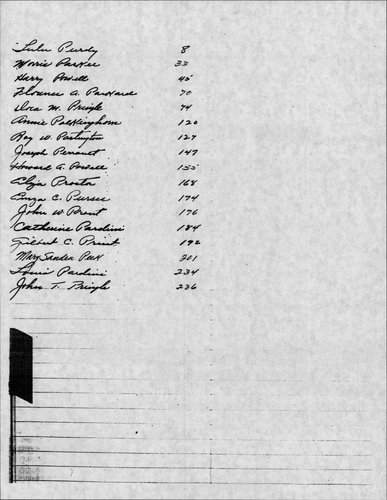 Lulu Purdy 8
Morris Parker 33
Harry Powell 45
Florence A. Packard 70
Dora M. Pringle 74
Annie Polkinghorn 120
Roy W. Partington 127
Joseph 147
Howard A. Powell 155
Eliza Proctor 168
C. Purser 174
John W. Prout 176
Catherine Pardini 184
Gilbert C. Print 192
Mary Sanden Peck 201
Louis Pardini 234
John T. Pringle 236